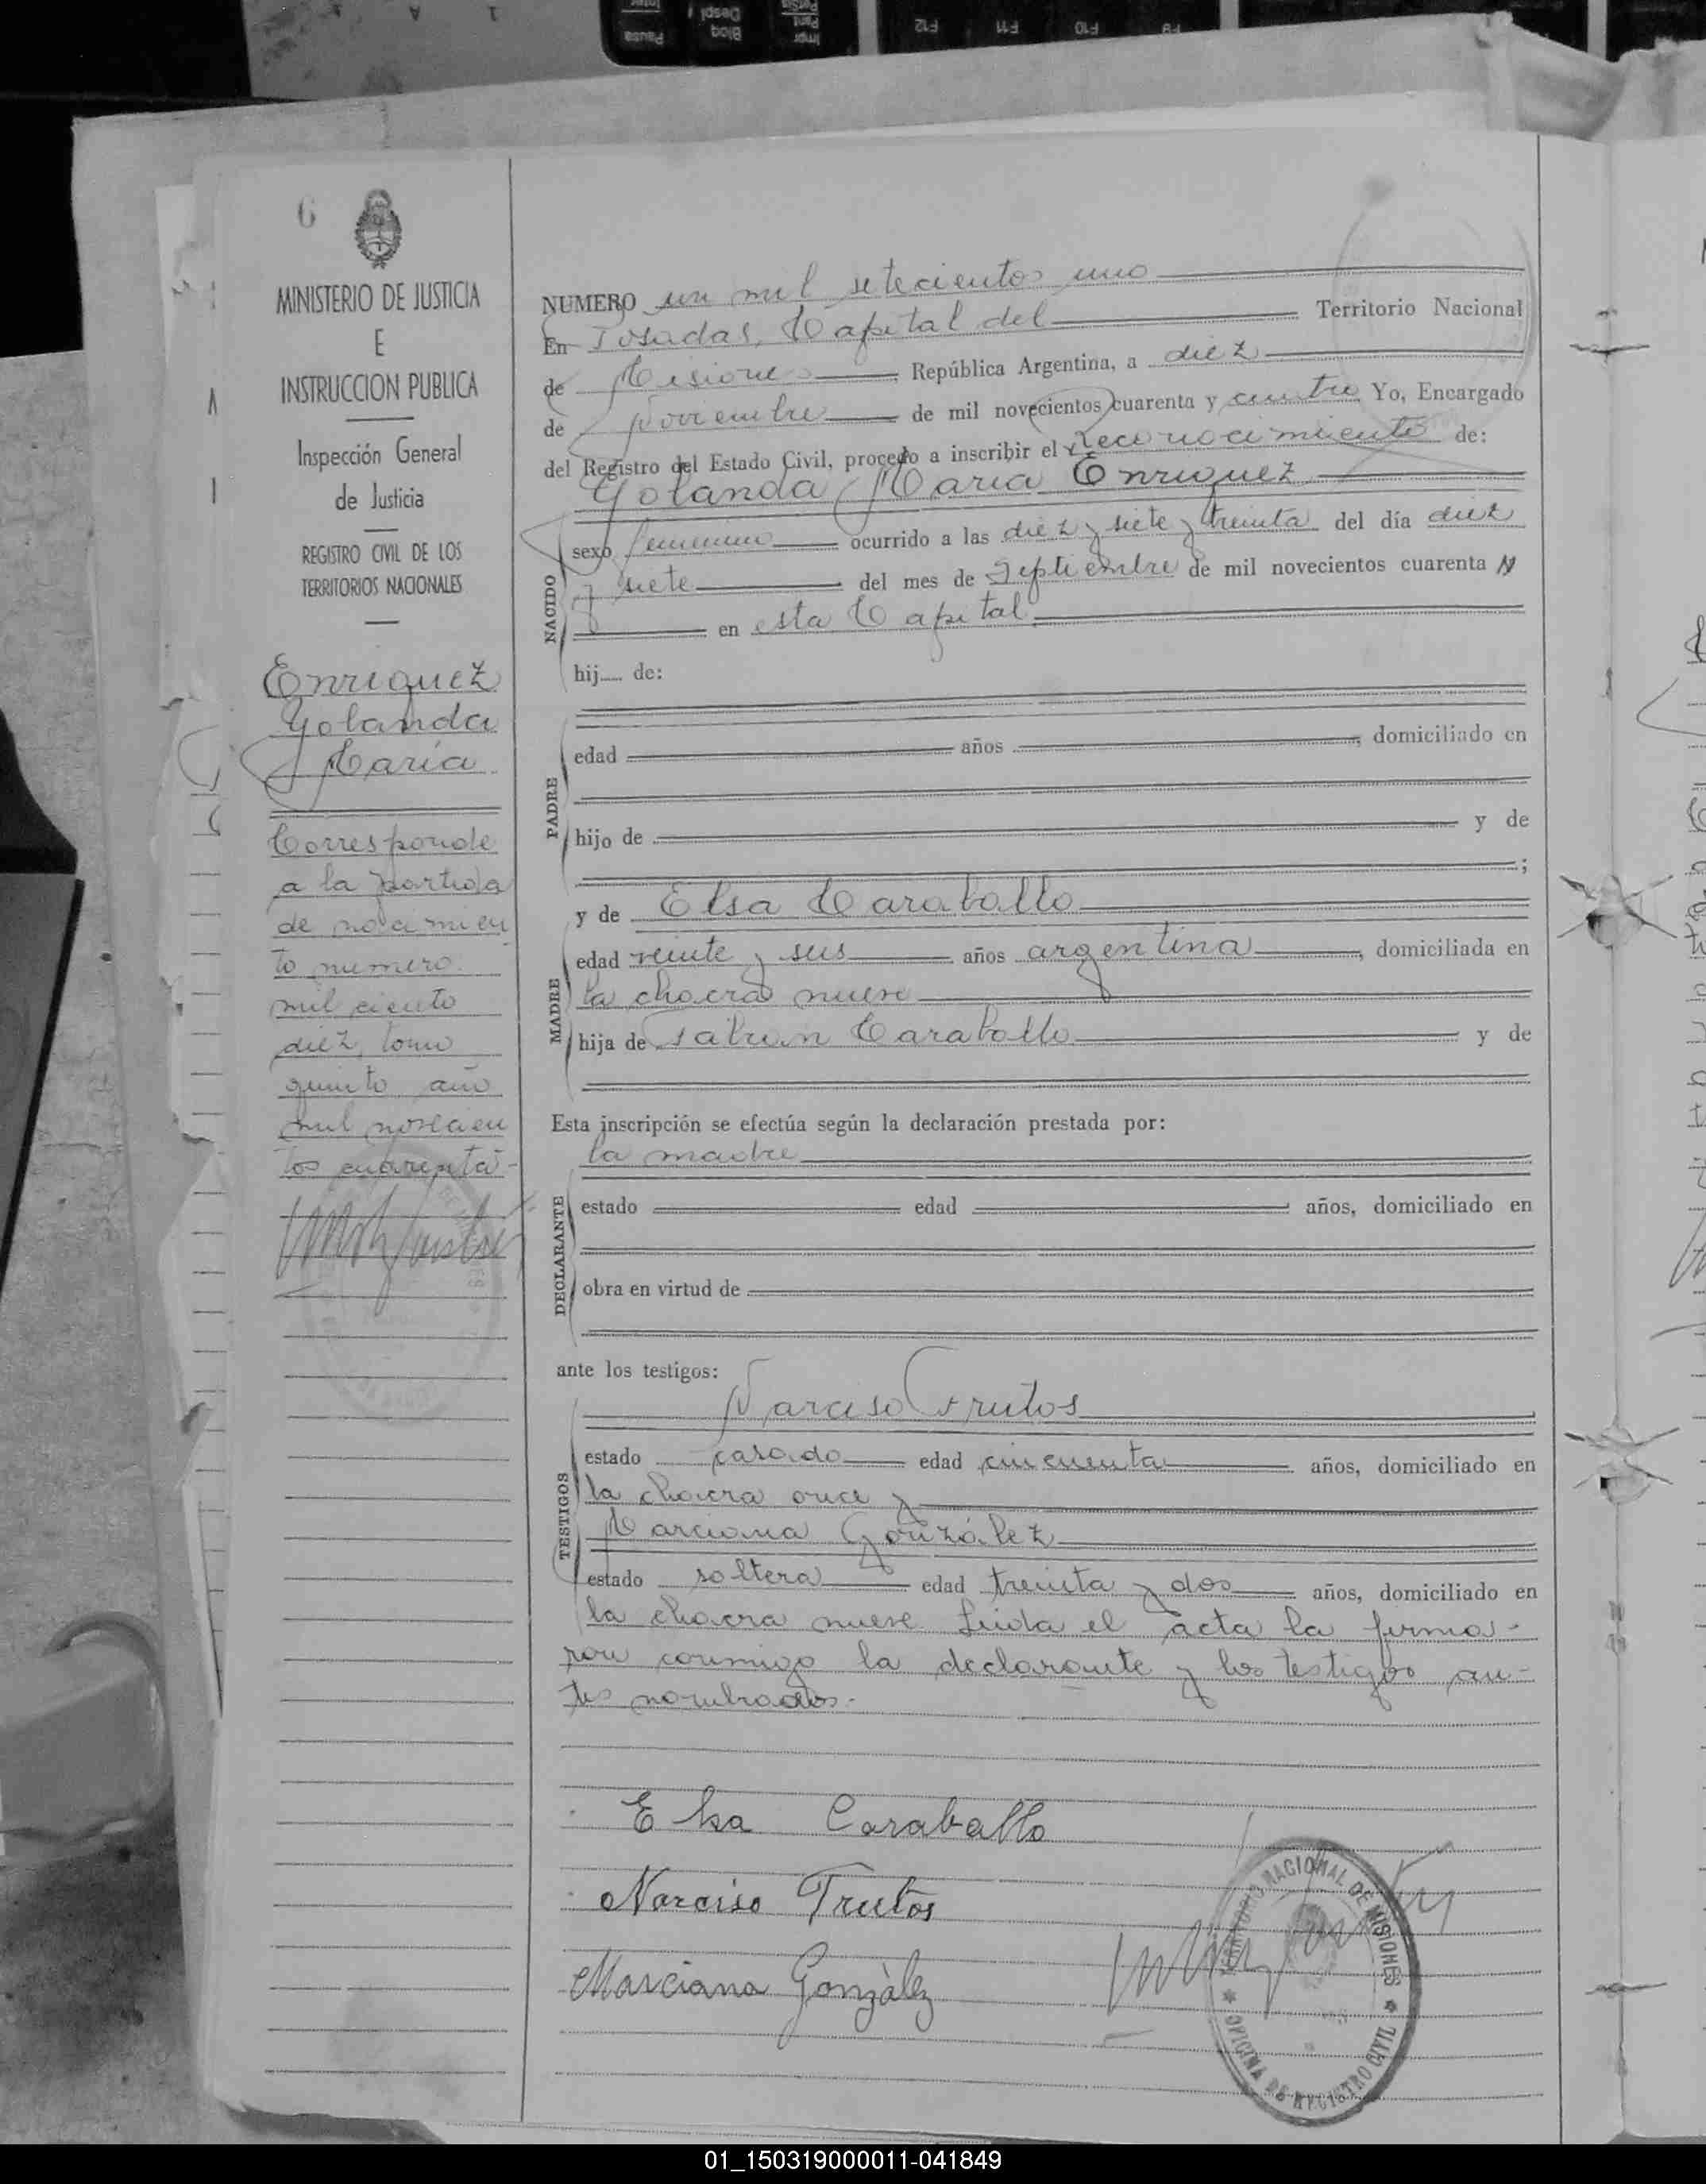 6
MINISTERIO DE JUSTICIA
E
INSTRUCCION PUBLICA
Inspección General
de Justicia
REGISTRO CIVIL DE LOS
TERRITORIOS NACIONALES
Enriquez
Yolanda
María
Corresponde
a la partida
de nacimien
to numero
mil ciento
diez, tomo
quinto año
mil novecien
tos cuarenta-
NUMERO un mil setecientos uno
En Posadas, Capital del Territorio Nacional
de Misiones República Argentina, a diez
de Noviembre de mil novecientos cuarenta y cuatro Yo, Encargado
del Registro del Estado Civil, procedo a inscribir el reconocimiento de:
Yolanda Maria Enriquez
NACIDO
sexo femenino ocurrido a las diez y siete y treinta del día diez
y siete del mes de Septiembre de mil novecientos cuarenta
en esta Capital
hij..... de:
PADRE
edad años , domiciliado en
hijo de y de
;
y de Elsa Caraballo
MADRE
edad veinte y seis años argentina , domiciliada en
la chacra nueve
hija de Caraballo y de
Esta inscripción se efectúa según la declaración prestada por:
la madre
DECLARANTE
estado edad años, domiciliado en
obra en virtud de
ante los testigos:
Narciso Frutos
TESTIGOS
estado casado edad cincuenta años, domiciliado en
la chacra once y
Marciana González
estado soltera edad treinta y dos años, domiciliado en
la chacra nueve Leida el acta la firma-
ron conmigo la declarante y los testigos an-
tes nombrados.-
Elsa Caraballo
Narciso Frutos
Marciana Gonzàlez
TERRITORIO NACIONAL DE MISIONES
OFICINA DE REGISTRO CIVIL
01_150319000011-041849